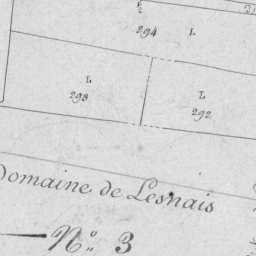 294 L
L
293
L
292
Domaine de Lesnais
N.° 3